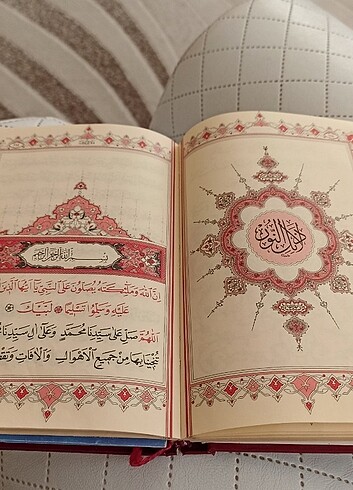 بسم الله الرحمن الرحيم
اِنَّ اللهَ وَمَلٰٓئِكَتَهُ يُصَلُّونَ عَلَى النَّبِيِّ يَآ اَيُّهَا الَّذِينَ
عَلَيْهِ وَسَلِّمُوا تَسْلِيمًا لَبَّيْكَ
اَللّٰهُمَّ صَلِّ عَلٰى سَيِّدِنَا مُحَمَّدٍ وَعَلٰٓى اٰلِ سَيِّدِنَا
تُنْجِينَا بِهَا مِنْ جَمِيعِ الْاَهْوَالِ وَالْاٰفَاتِ
النور